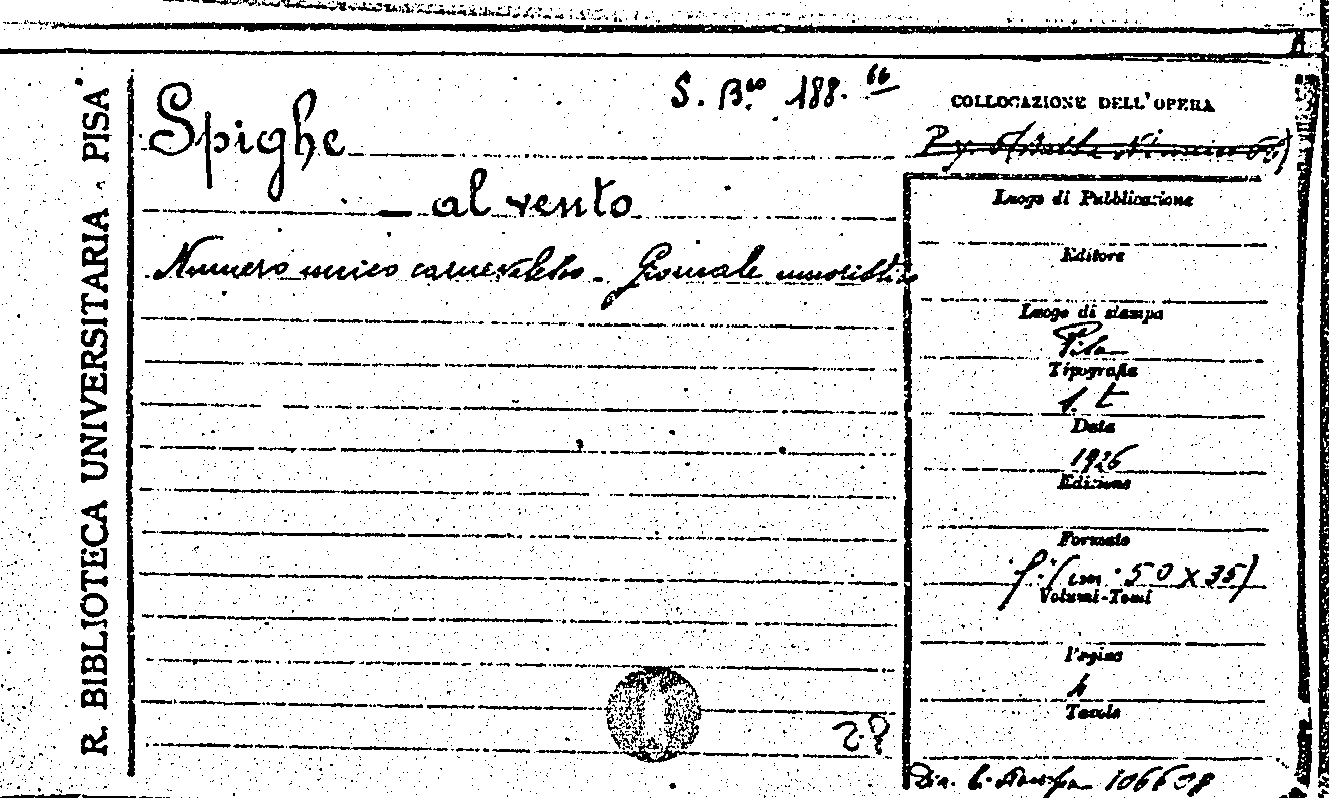 R. BIBLIOTECA UNIVERSITARIA - PISA
S. B.co 188.66
Spighe
al vento
Numero unico carnevalesco - Giornale umoristico
COLLOCAZIONE DELL'OPERA
Luogo di Pubblicazione
Editore
Luogo di stampa
Pisa
Tipografia
s. t.
Data
1926
Edizione
Formato
f. (cm. 50 x 35)
Volumi-Tomi
Pagine
4
Tavole
Dir. 106608